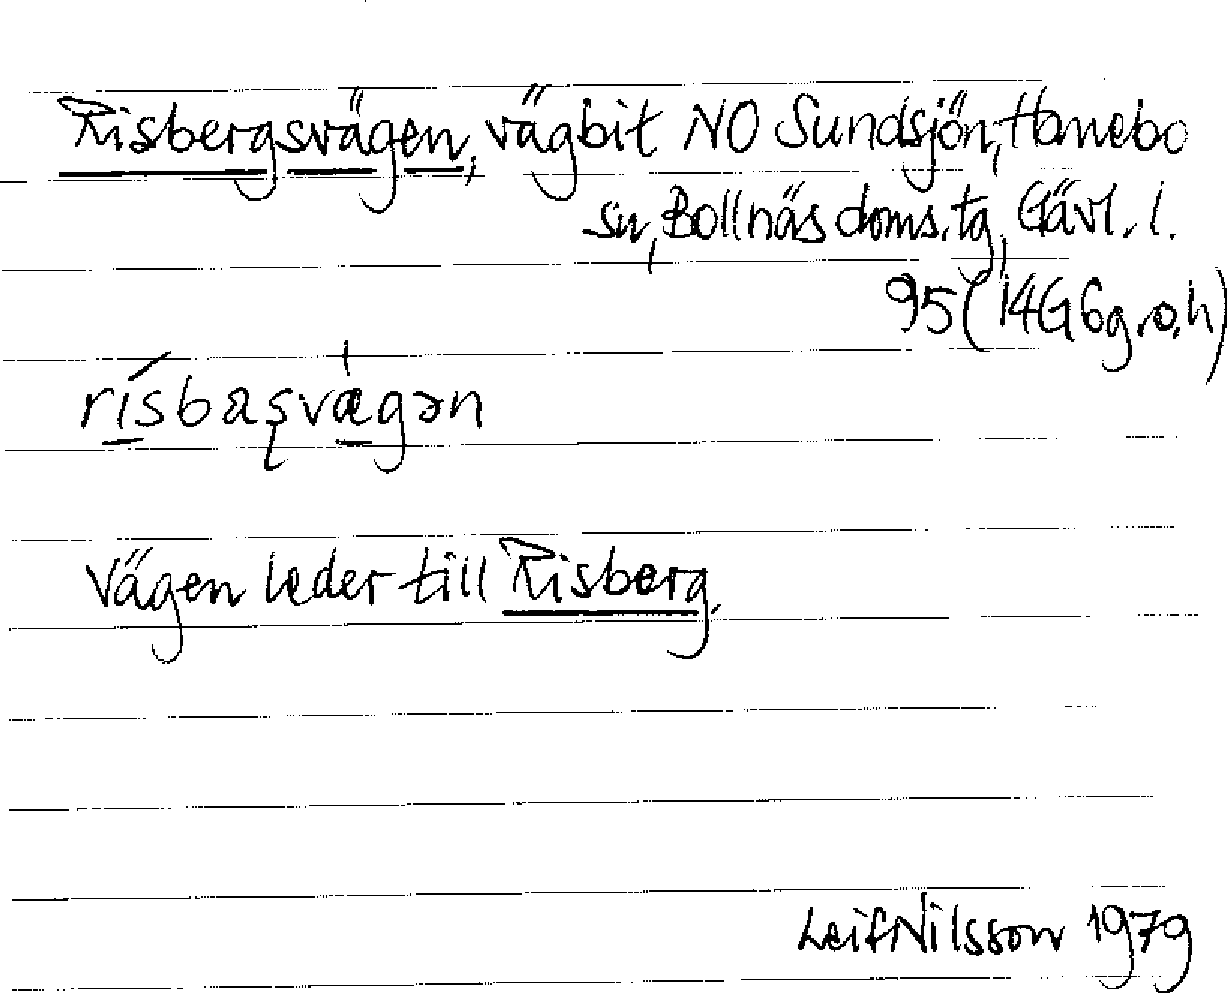 Risbergsvägen, vägbit NO Sundsjön, Hanebo
sn, Bollnäs doms. tg, Gävl. l.
95 (14G6g.o.h)
vägen leder till Risberg.
Leif Nilsson 1979